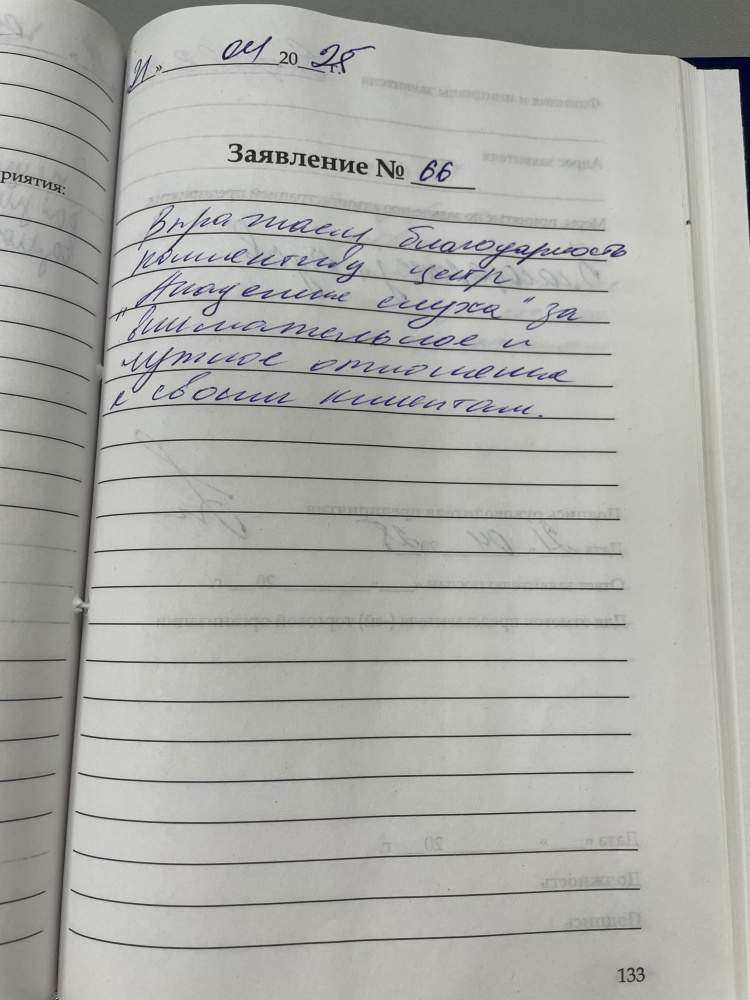 21 » 04 20 25 г.
риятия:
Заявление № 66
Выражаем благодарность
коллективу центр
„Академия слуха“ за
внимательное и
чуткое отношение
к своим клиентам.
133